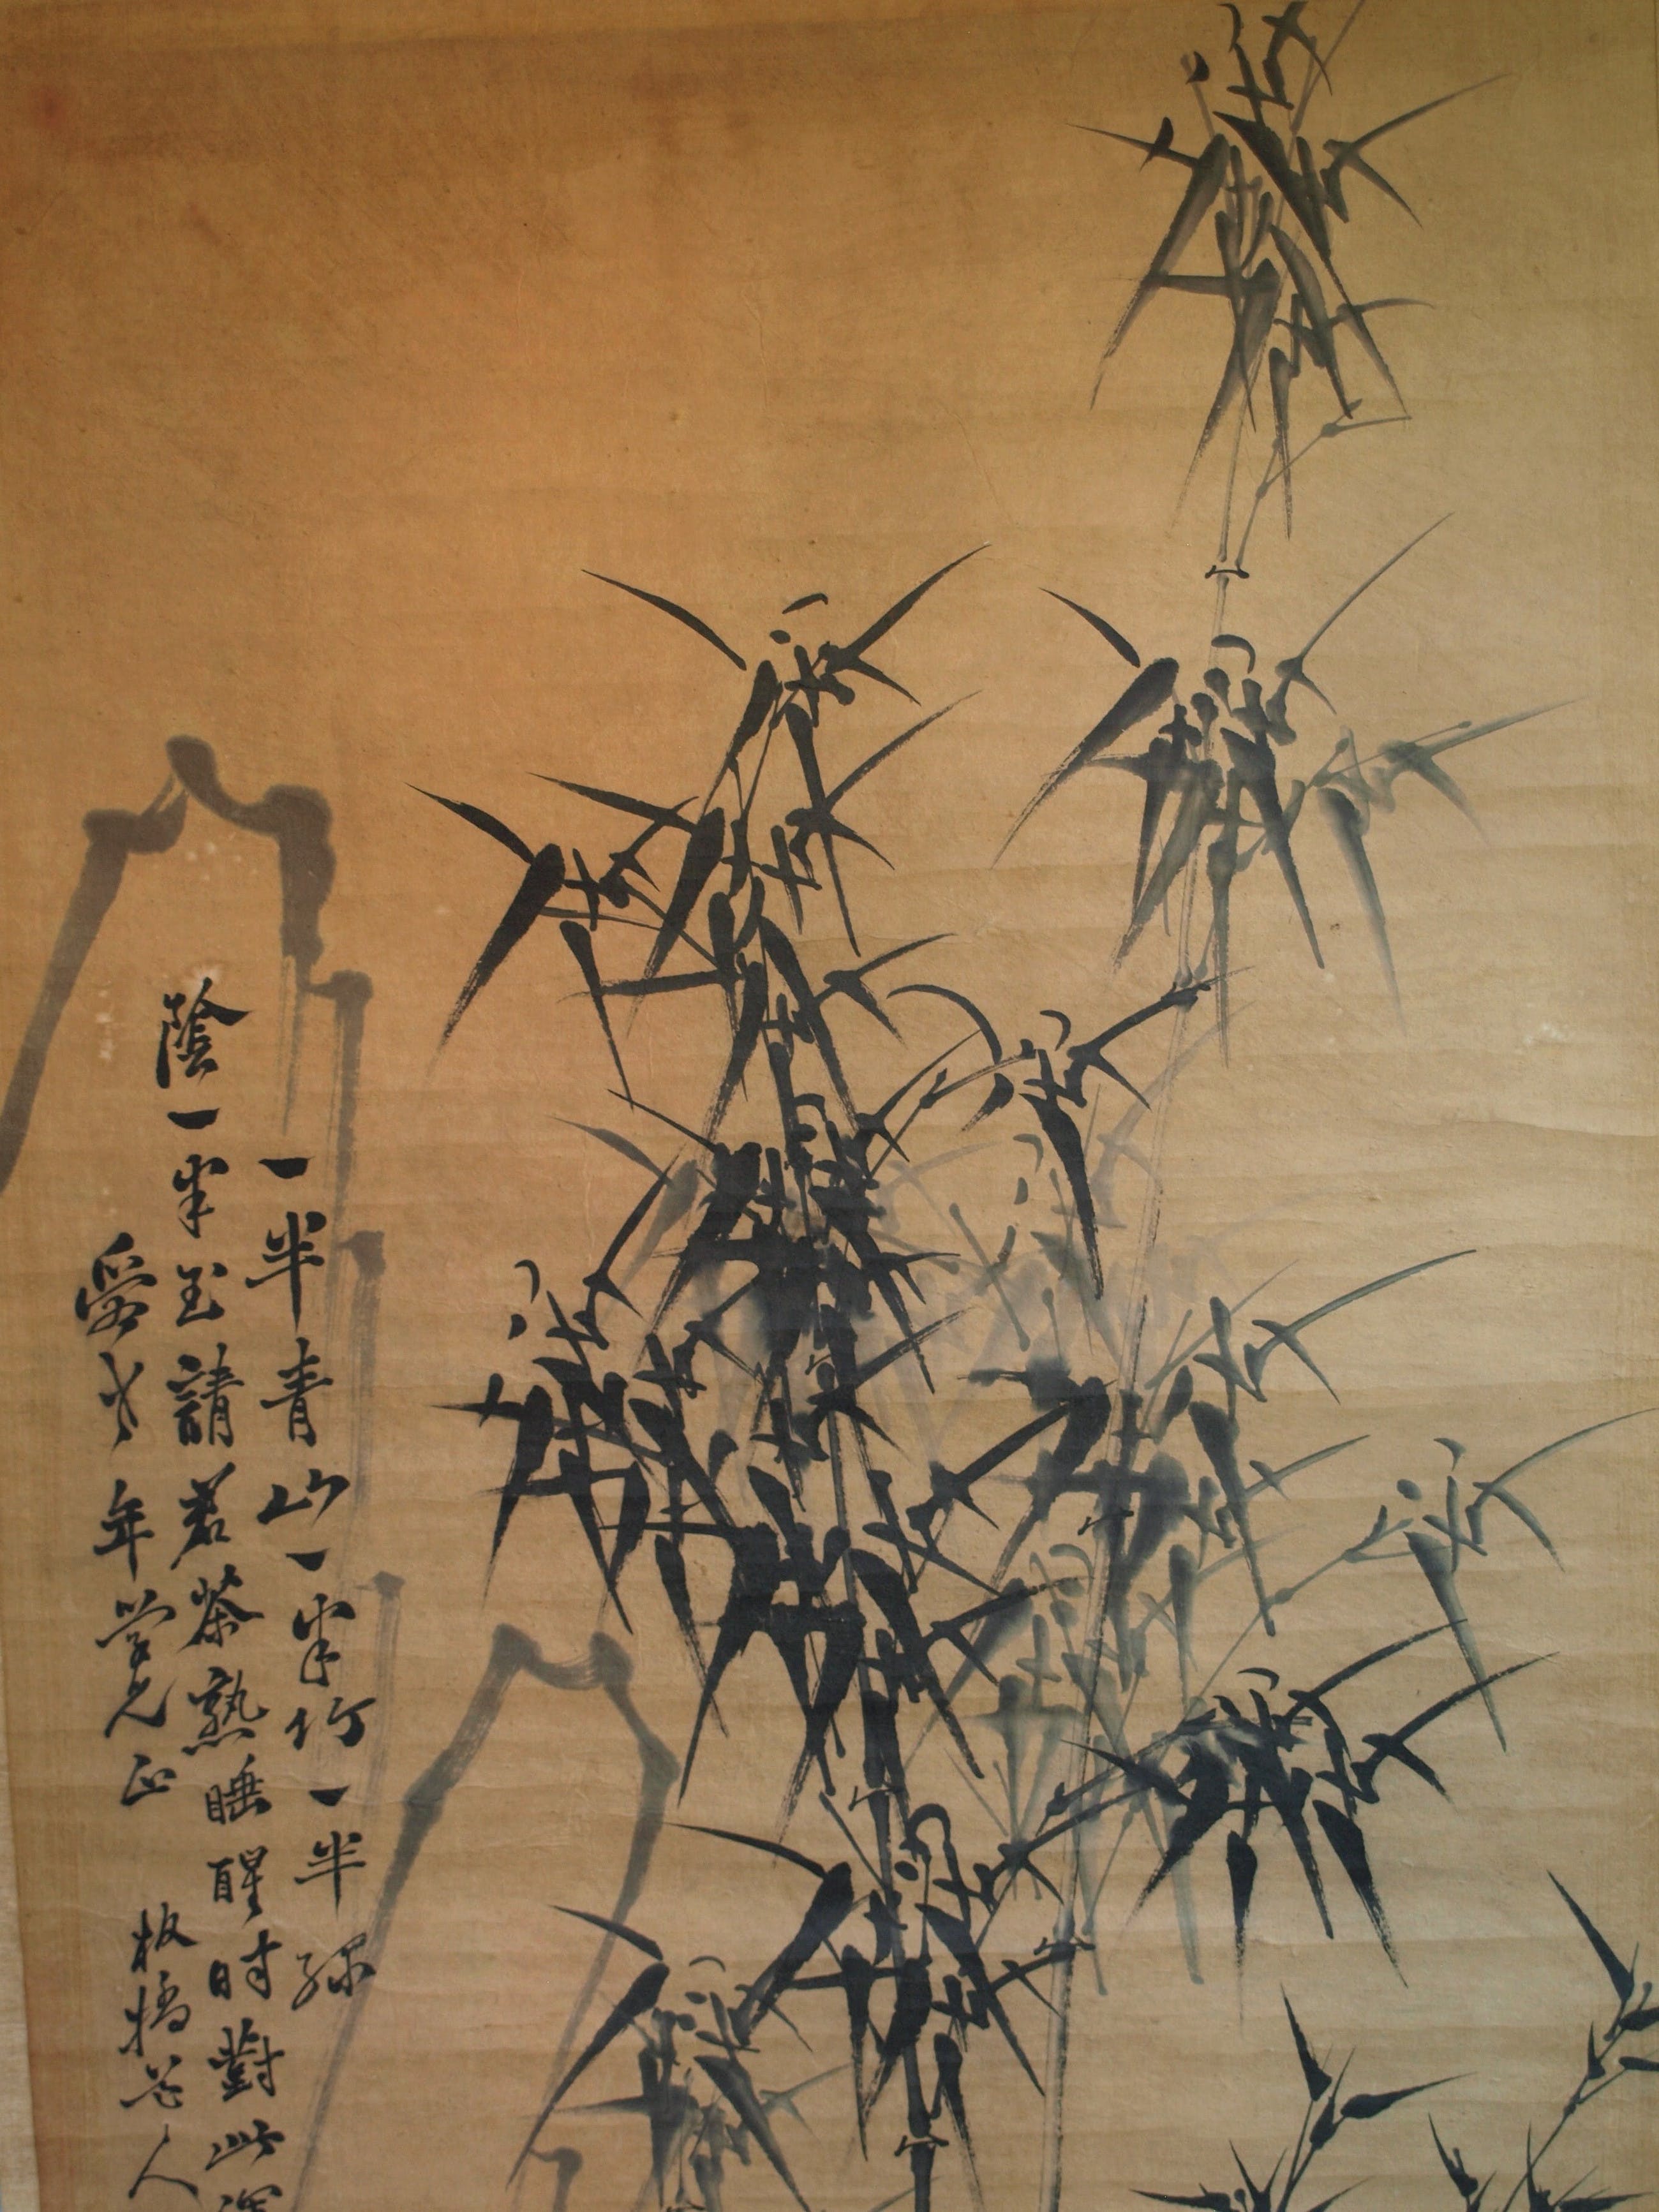 一半青山一半竹一半綠
陰一半玉請君茶熟睡醒時對此渾
年學兄正
板橋人